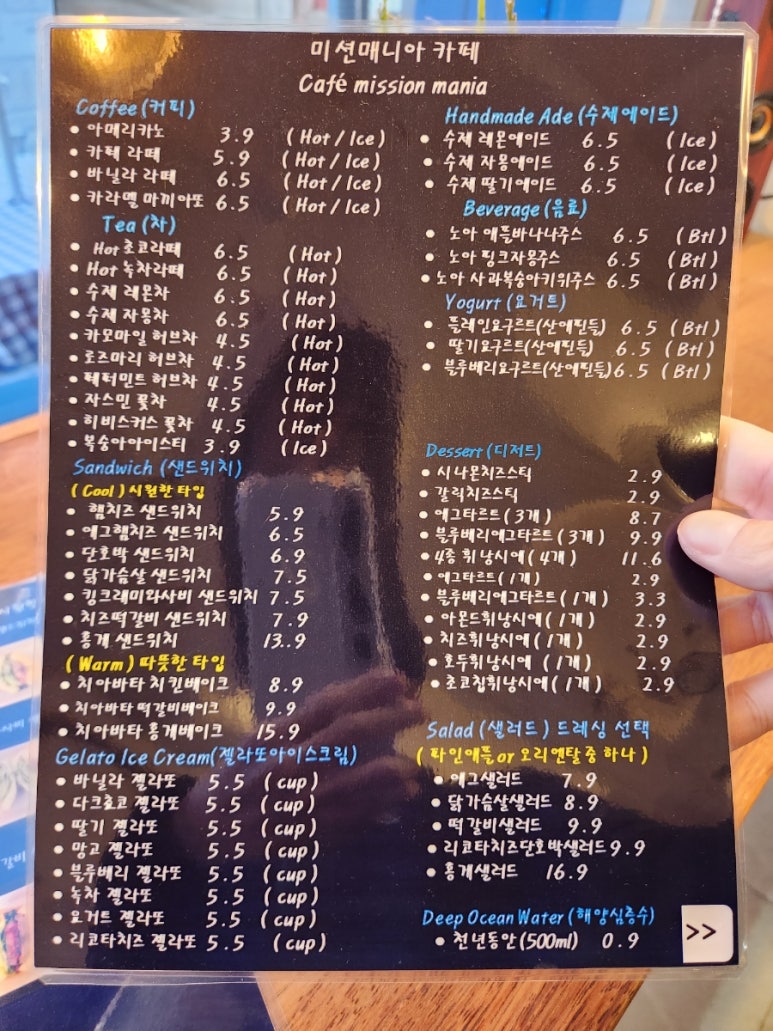 미션매니아 카페
Café mission mania
Coffee (커피)
• 아메리카노 3.9 (Hot / Ice)
• 카페 라떼 5.9 (Hot / Ice)
• 바닐라 라떼 6.5 (Hot / Ice)
• 카라멜 마끼아또 6.5 (Hot / Ice)
Tea (차)
• Hot 초코라떼 6.5 (Hot)
• Hot 녹차라떼 6.5 (Hot)
• 수제 레몬차 6.5 (Hot)
• 수제 자몽차 6.5 (Hot)
• 카모마일 허브차 4.5 (Hot)
• 로즈마리 허브차 4.5 (Hot)
• 페퍼민트 허브차 4.5 (Hot)
• 자스민 꽃차 4.5 (Hot)
• 히비스커스 꽃차 4.5 (Hot)
• 복숭아아이스티 3.9 (Ice)
Sandwich (샌드위치)
(Cool) 시원한 타입
• 햄치즈 샌드위치 5.9
• 에그햄치즈 샌드위치 6.5
• 단호박 샌드위치 6.9
• 닭가슴살 샌드위치 7.5
• 킹크래미와사비 샌드위치 7.5
• 치즈떡갈비 샌드위치 7.9
• 홍게 샌드위치 13..9
(Warm) 따뜻한 타입
• 치아바타 치킨베이크 8.9
• 치아바타 떡갈비베이크 9.9
• 치아바타 홍게베이크 15.9
Gelato Ice Cream(젤라또아이스크림)
• 바닐라 젤라또 5.5 (cup)
• 다크초코 젤라또 5.5 (cup)
• 딸기 젤라또 5.5 (cup)
• 망고 젤라또 5.5 (cup)
• 블루베리 젤라또 5.5 (cup)
• 녹차 젤라또 5.5 (cup)
• 요거트 젤라또 5.5 (cup)
• 리코타치즈 젤라또 5.5 (cup)
Handmade Ade (수제에이드)
• 수제 레몬에이드 6.5 (Ice)
• 수제 자몽에이드 6.5 (Ice)
• 수제 딸기에이드 6.5 (Ice)
Beverage (음료)
• 노아 애플바나나쥬스 6.5 (Btl)
• 노아 핑크자몽쥬스 6.5 (Btl)
• 노아 사과복숭아키위쥬스 6.5 (Btl)
Yogurt (요거트)
• 플레인요구르트(산에핀들) 6.5 (Btl)
• 딸기요구르트(산에핀들) 6.5 (Btl)
• 블루베리요구르트(산에핀들) 6.5 (Btl)
Dessert (디저트)
• 시나몬치즈스틱 2.9
• 갈릭치즈스틱 2.9
• 에그타르트 (3개) 8.7
• 블루베리에그타르트 (3개) 9.9
• 4종 휘낭시에 (4개) 11.6
• 에그타르트 (1개) 2.9
• 블루베리에그타르트 (1개) 3.3
• 아몬드휘낭시에 (1개) 2.9
• 치즈휘낭시에 (1개) 2.9
• 호두휘낭시에 (1개) 2.9
• 초코칩휘낭시에 (1개) 2.9
Salad (샐러드) 드레싱 선택
(파인애플 or 오리엔탈 중 하나)
• 에그샐러드 7.9
• 닭가슴살샐러드 8.9
• 떡갈비샐러드 9.9
• 리코타치즈단호박샐러드 9.9
• 홍게샐러드 16.9
Deep Ocean Water (해양심층수)
• 천년동안(500ml) 0.9
>>